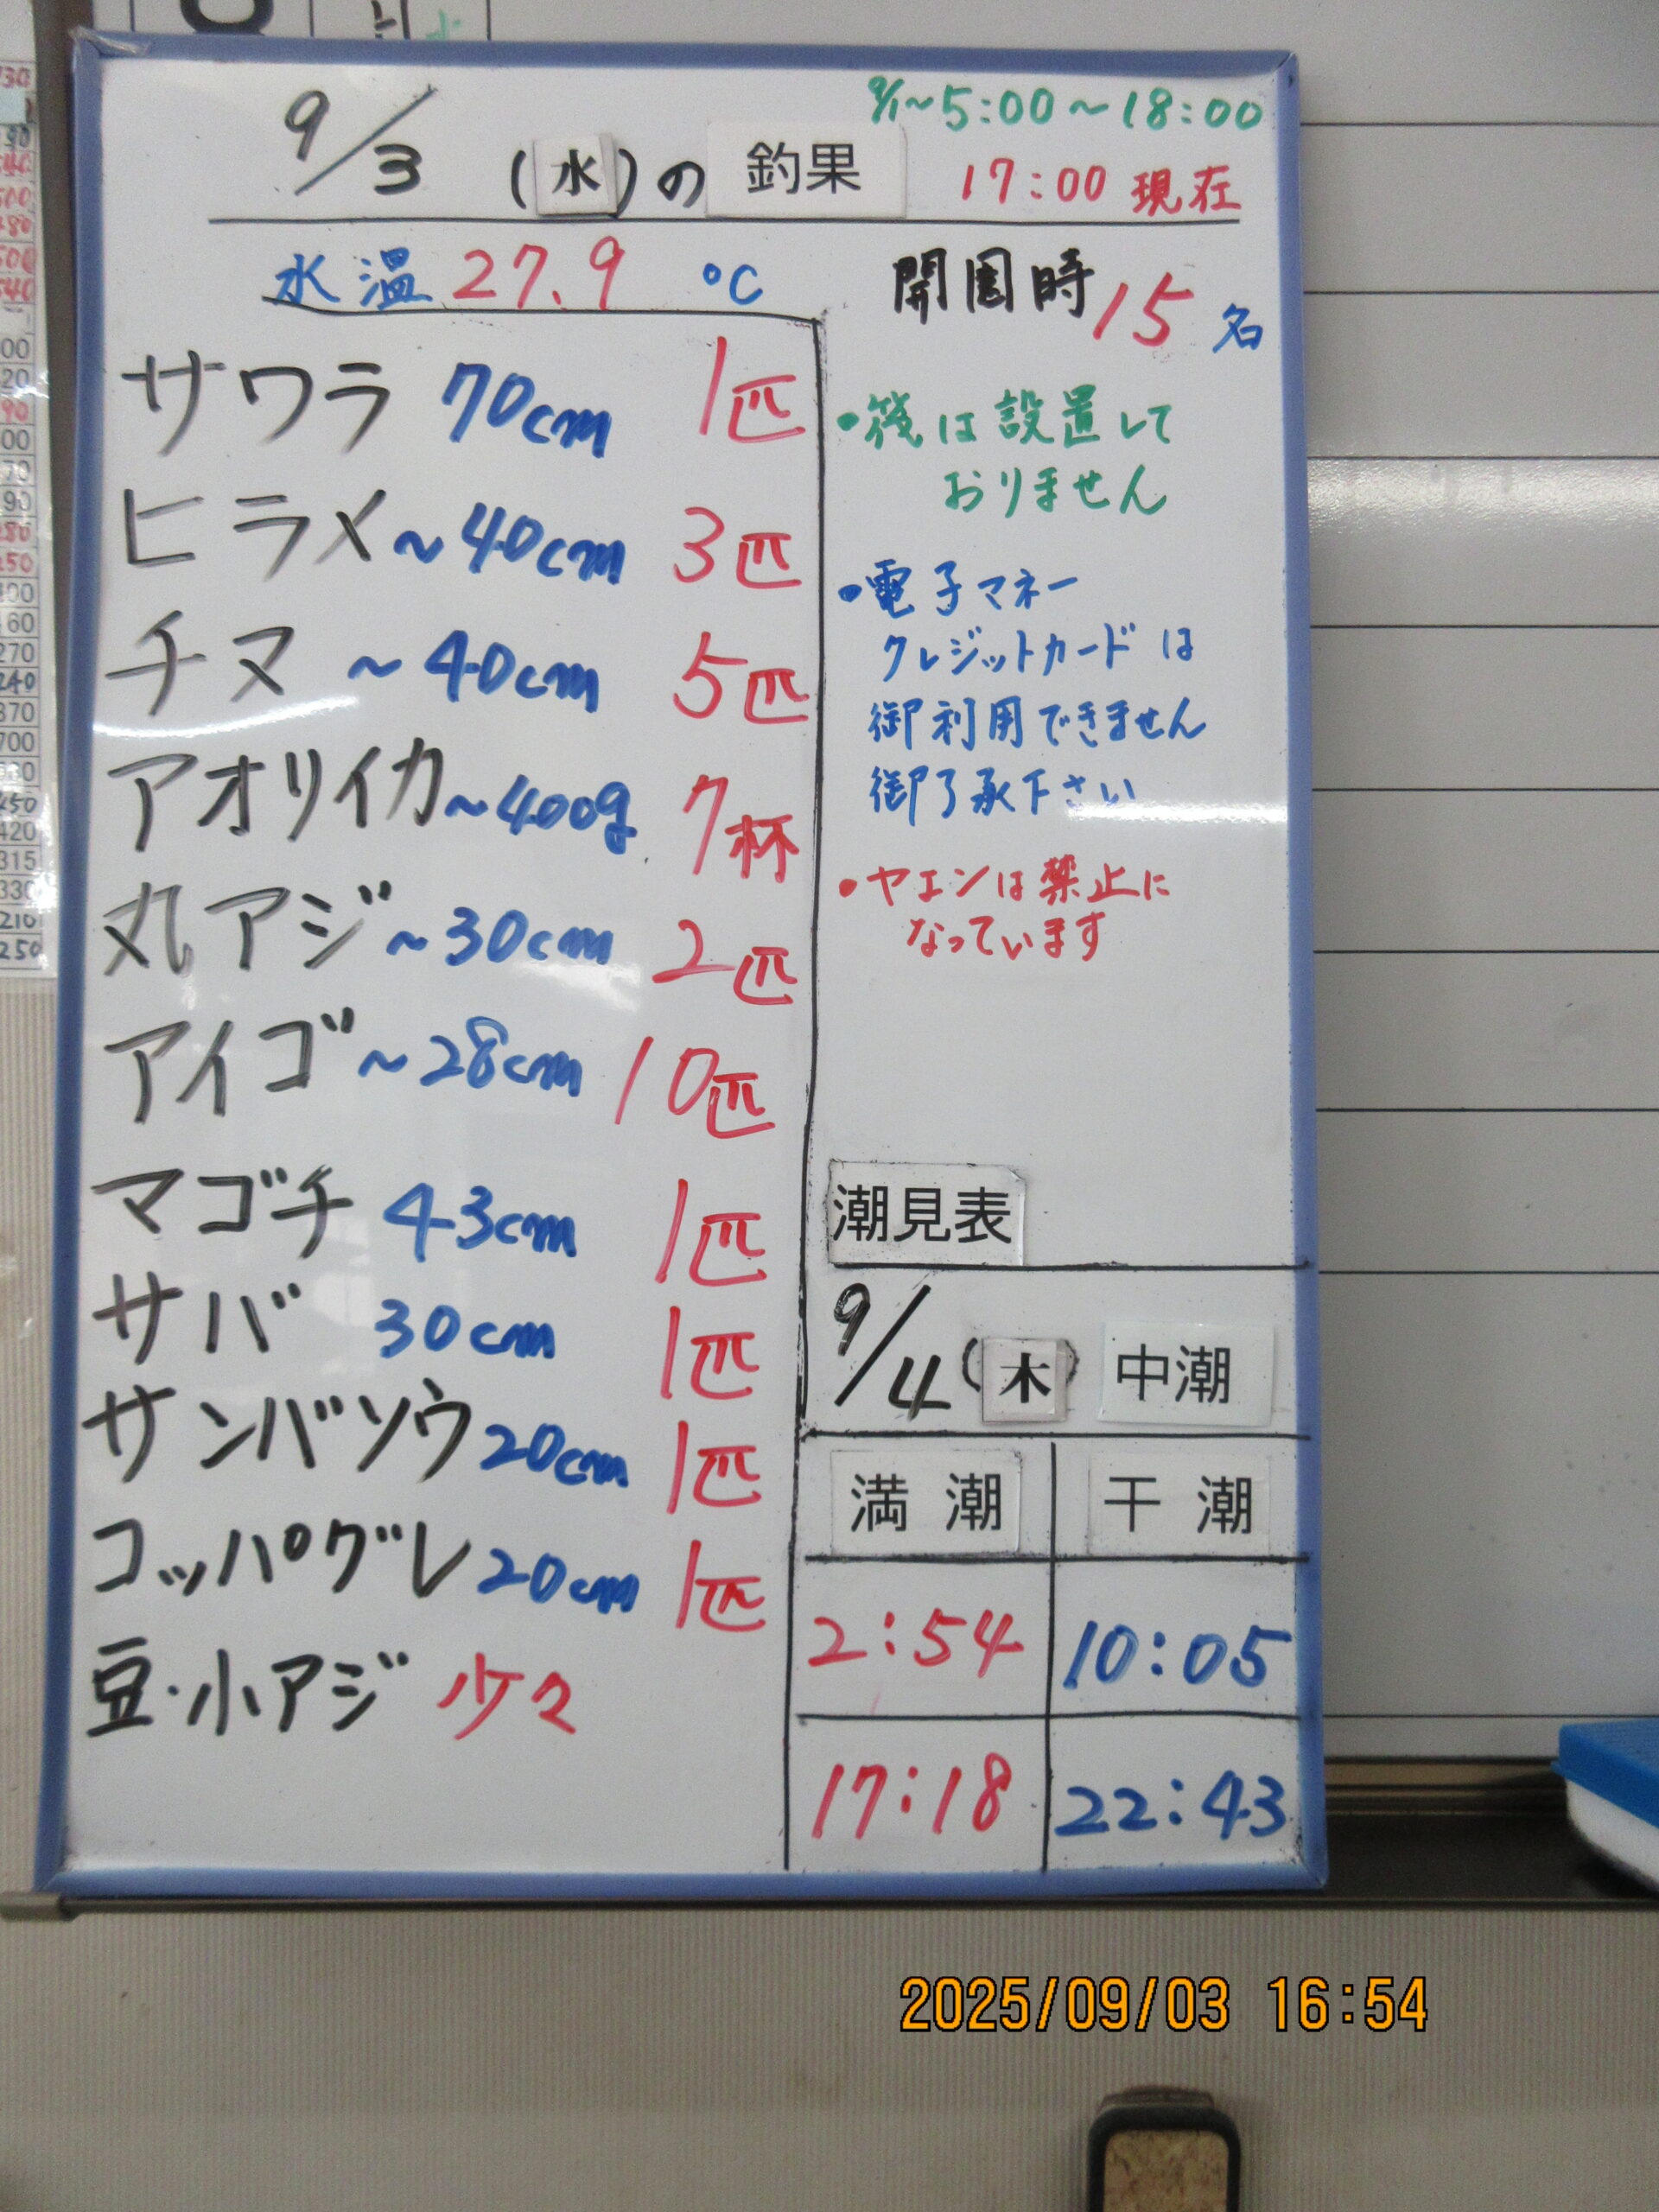 9/1～5:00～18:00
9/3 (水)の 釣果 17:00 現在
水温 27.9 ℃
開園時 15 名
サワラ 70cm 1匹
ヒラメ ～40cm 3匹
チヌ ～40cm 5匹
アオリイカ ～400g 7杯
丸アジ ～30cm 2匹
アイゴ ～28cm 10匹
マゴチ 43cm 1匹
サバ 30cm 1匹
サンバソウ 20cm 1匹
コッパグレ 20cm 1匹
豆・小アジ 少々
・筏は設置して
おりません
・電子マネー
クレジットカードは
御利用できません
御了承下さい
・ヤエンは禁止に
なっています
潮見表
9/4 (木) 中潮
満潮 干潮
2:54 10:05
17:18 22:43
2025/09/03 16:54